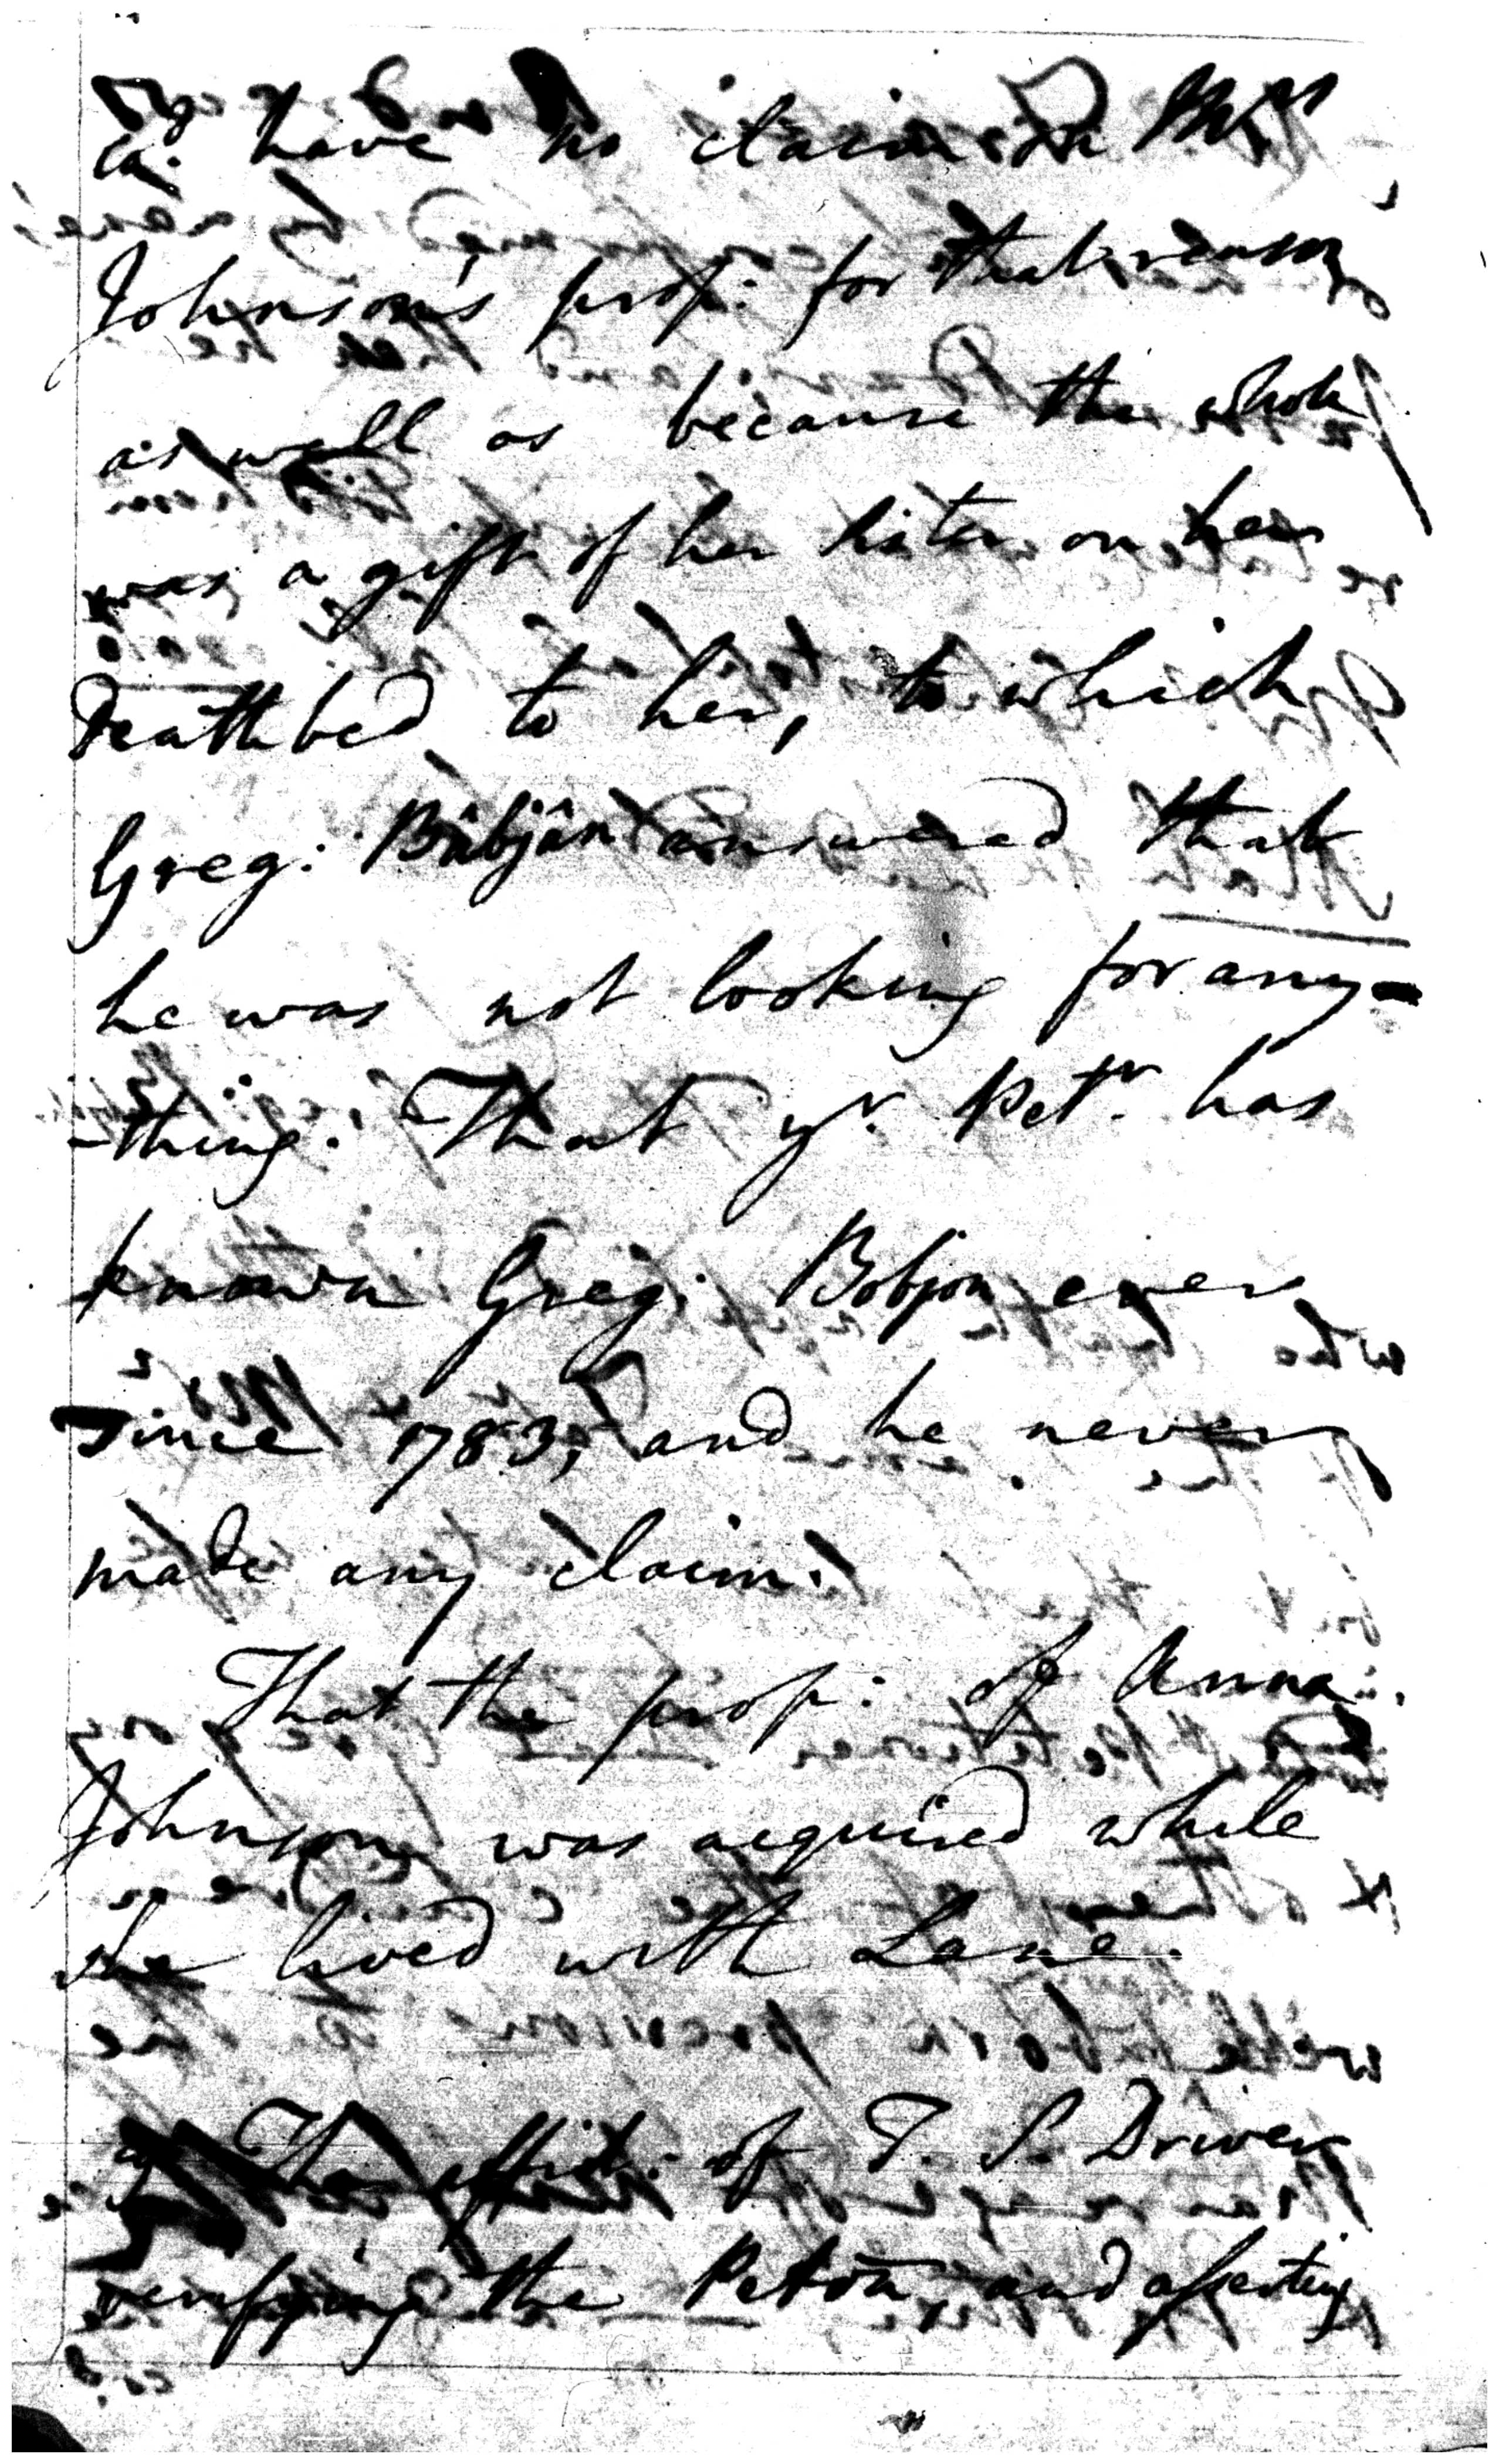 cd. have no claim on Mrs
Johnson's prop: for that reason
as well as because the whole
was a gift of her sister on her
Deathbed to her, to which
Greg: Bâbjân answered that
he was not looking for any-
-thing. That yr. Petr. has
known Greg: Bobjon ever
since 1783, and he never
made any claim.
That the prop: of Anna
Johnson was acquired while
she lived with Lane.
The affid.t of T. S. Driver
verifying the Petōn, and asserting